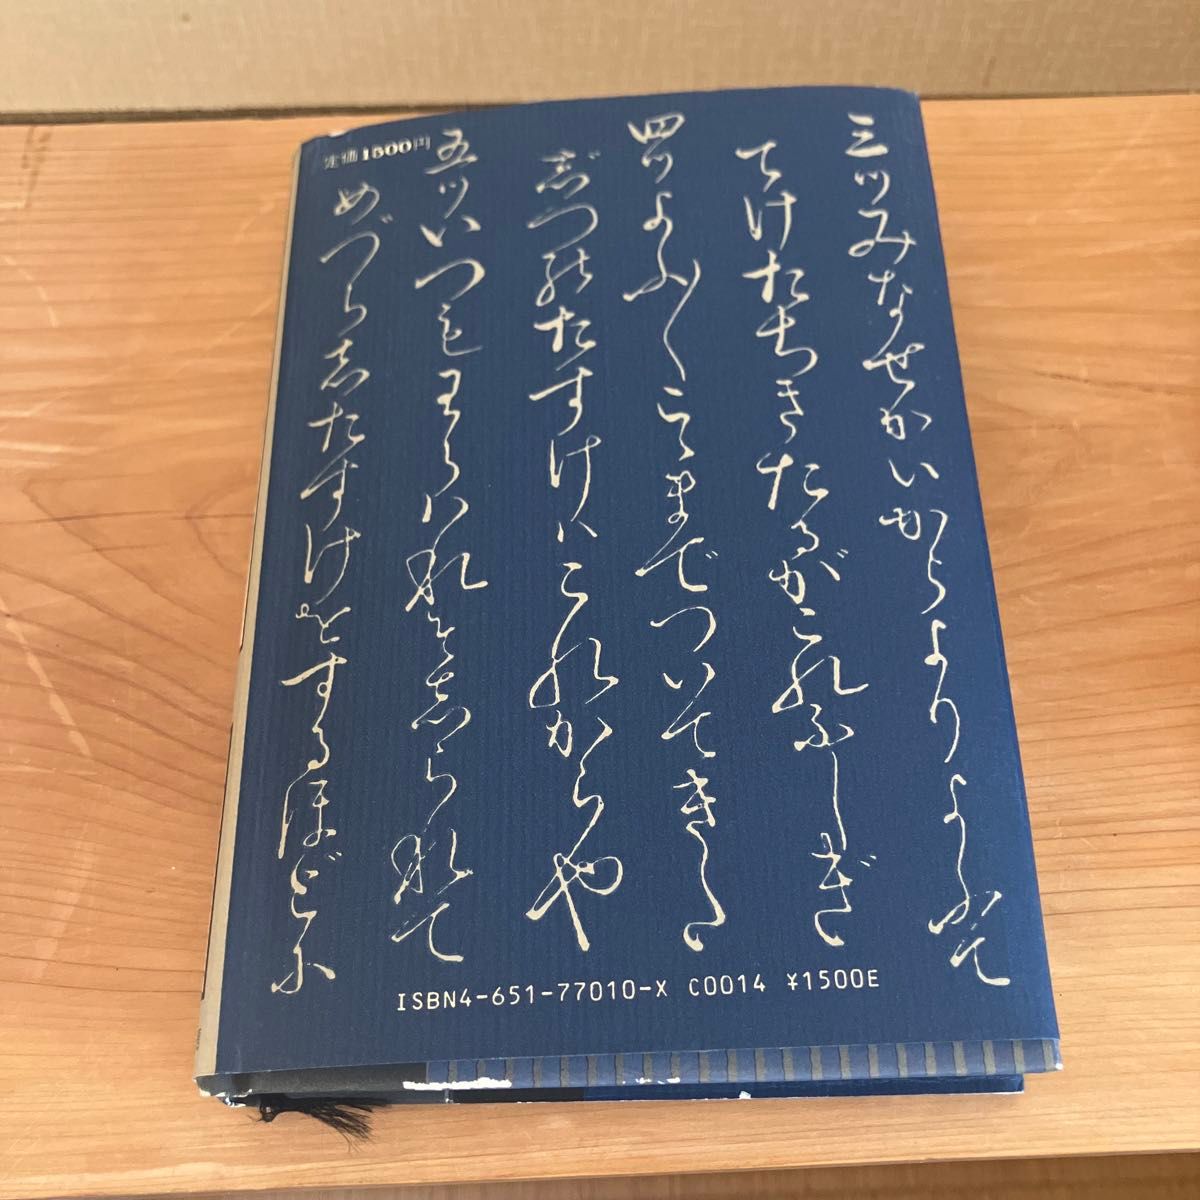 三ツみなせかいからよりよふて
てけたちきたるがこれふしぎ
四ツよふ〱こゝまでついてきた
じつのたすけハこれからや
五ツいつもわらハれそしられて
めづらしたすけをするほどに
定価1500円
ISBN4-651-77010-X C0014 ¥1500E